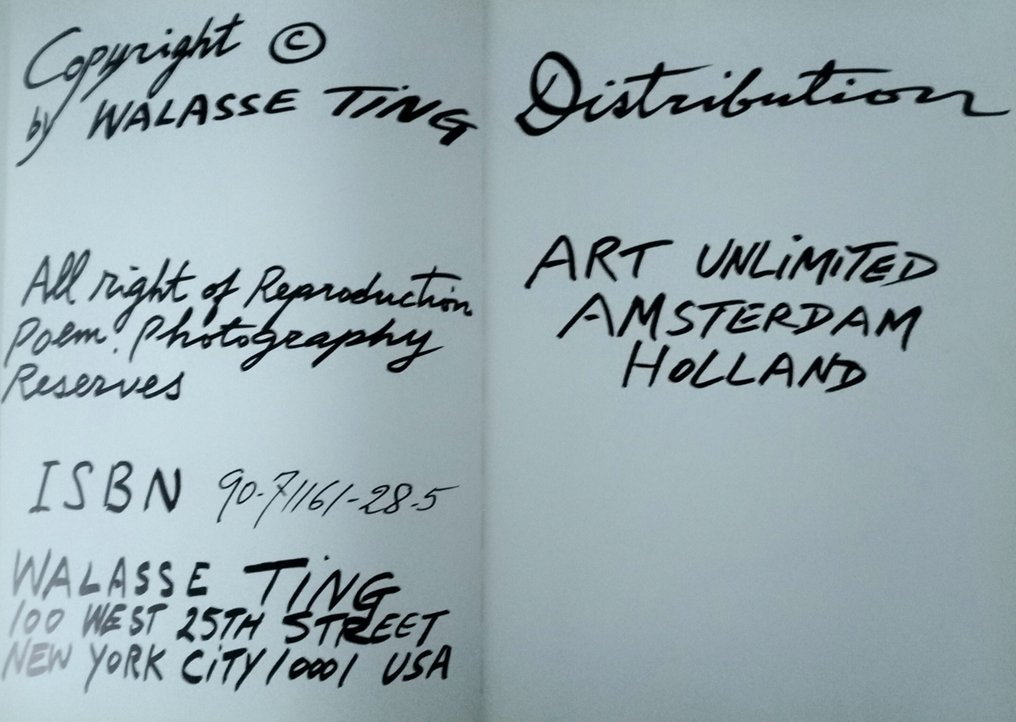 Copyright ©
by WALASSE TiNG
All right of Reproduction
Poem. Photography
Reserves
ISBN 90-71161-28-5
WALASSE TiNG
100 WEST 25TH STREET
NEW YORK CiTY 10001 USA
Distribution
ART UNLiMiTED
AMSTERDAM
HOLLAND